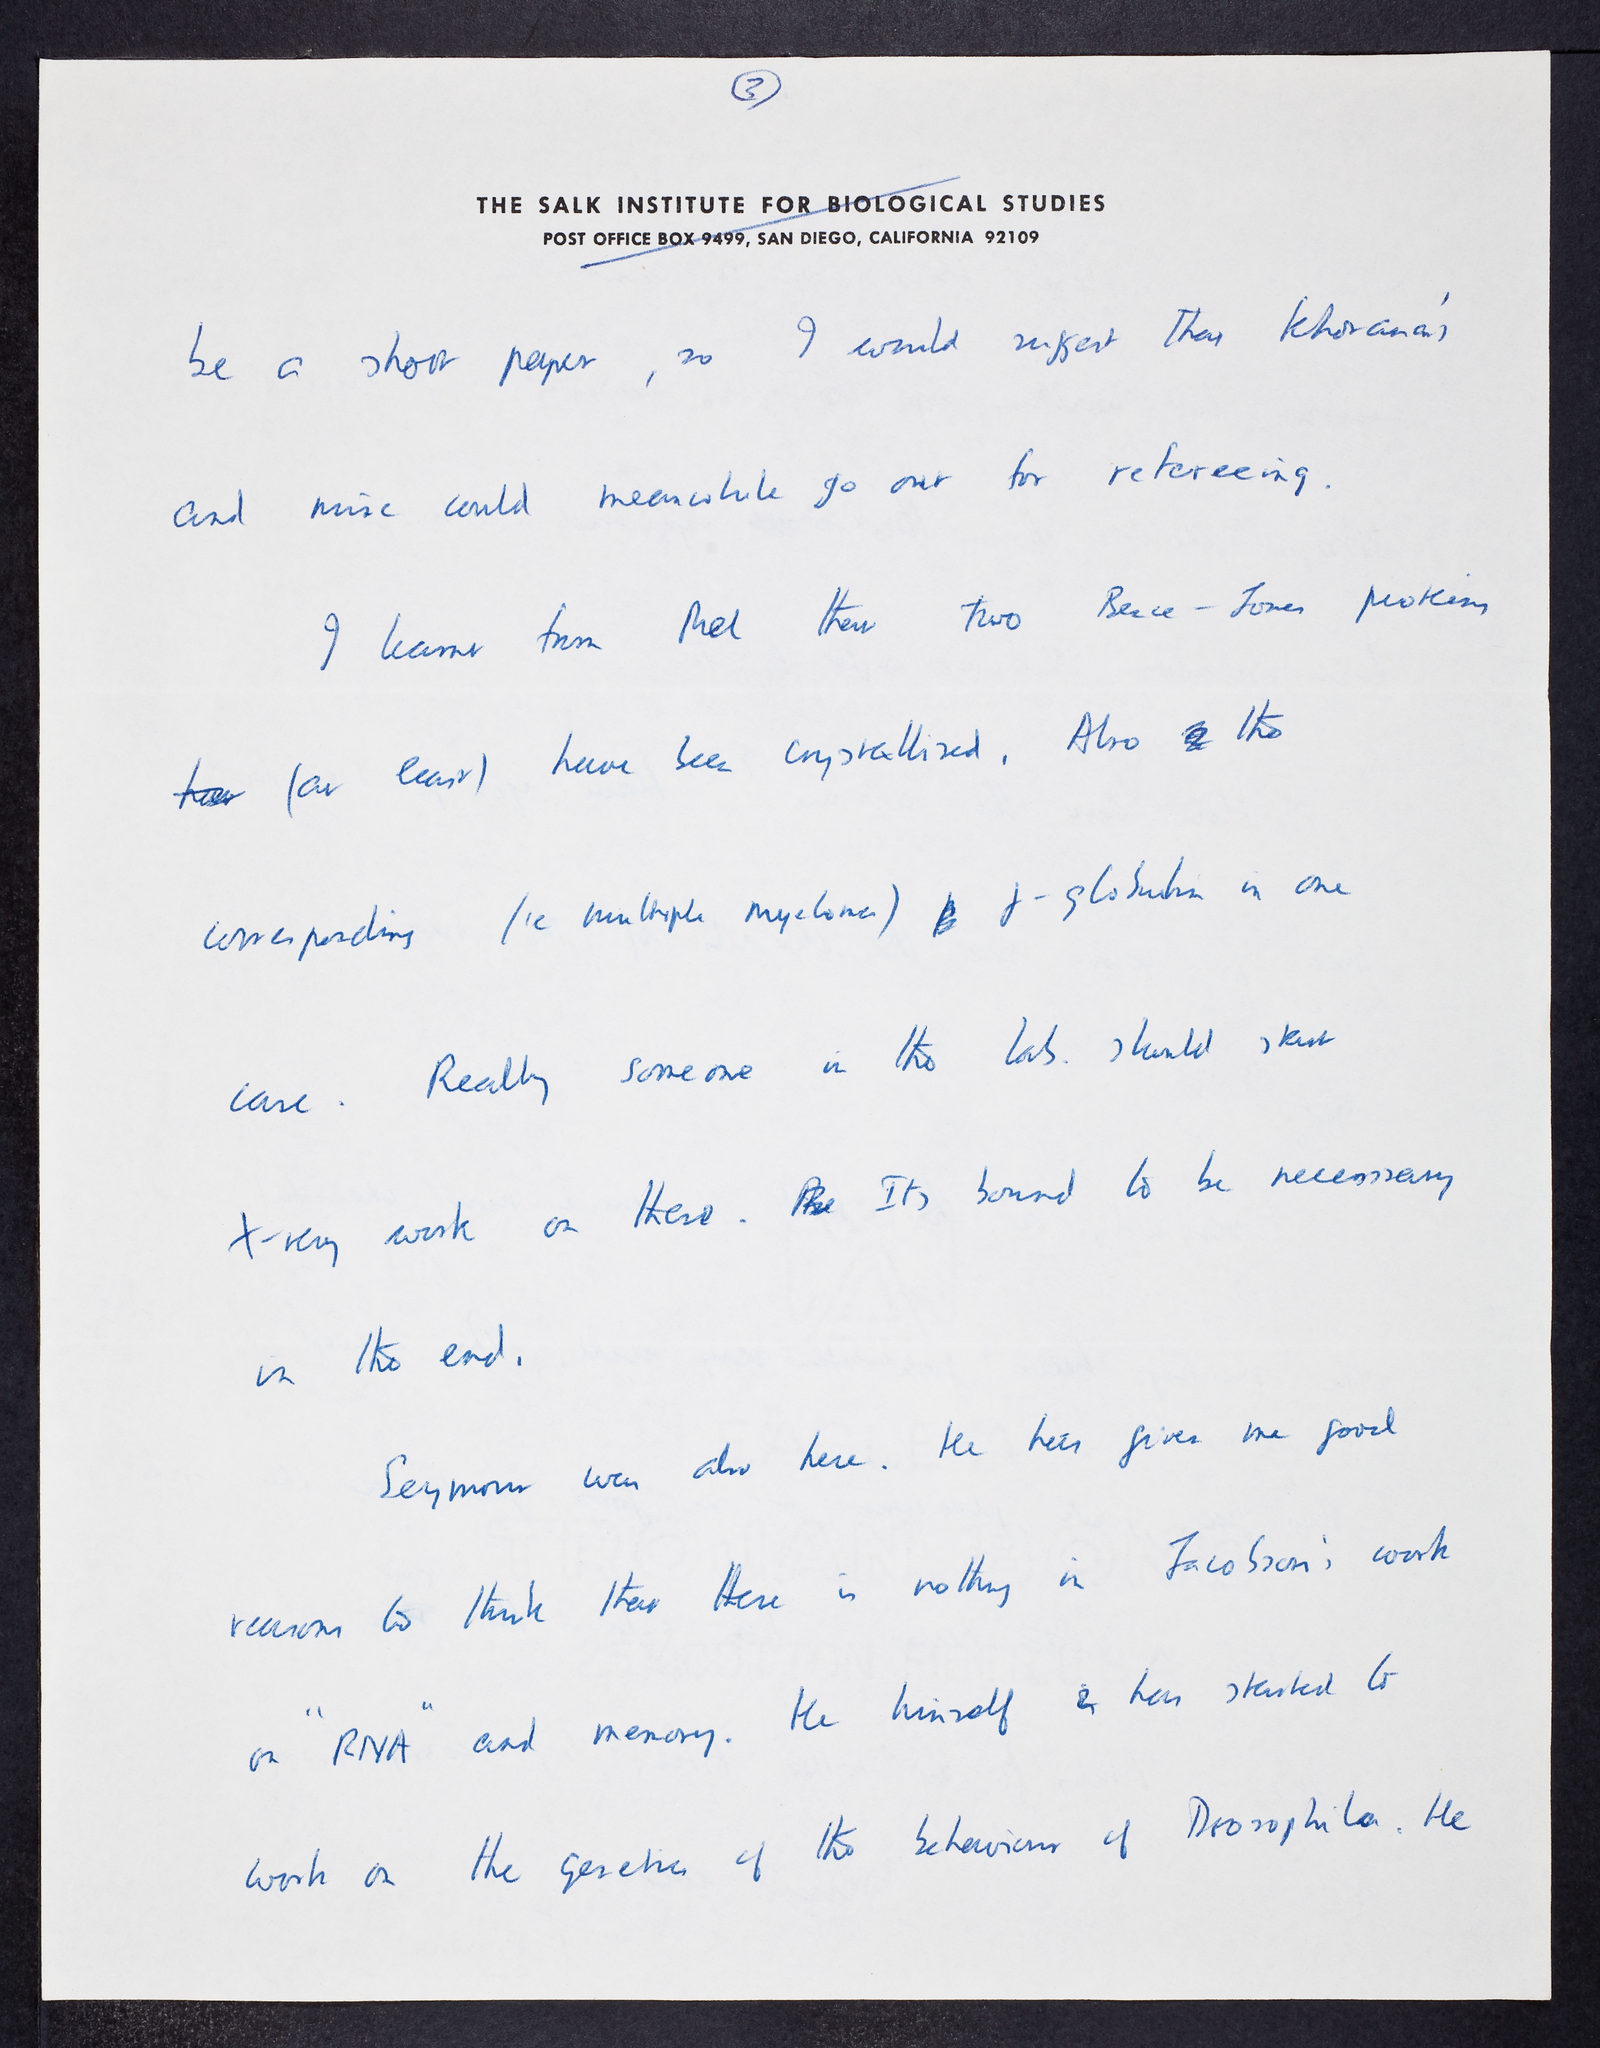 3
THE SALK INSTITUTE FOR BIOLOGICAL STUDIES
POST OFFICE BOX 9499, SAN DIEGO, CALIFORNIA 92109
be a short paper, so I would suggest that Khorana's
and mine could meanwhile go out for refereeing.
I learnt from Mel that two Bence-Jones proteins
(at least) have been crystallised. Also the
corresponding (ie multiple myeloma) γ-globulin in one
case. Really someone in the lab. should start
X-ray work on these. Its bound to be necessary
in the end.
Seymour was also here. He has given me good
reasons to think that there is nothing in Jacobson's work
on "RNA" and memory. He himself has started to
work on the genetics of the behaviour of Drosophila. He